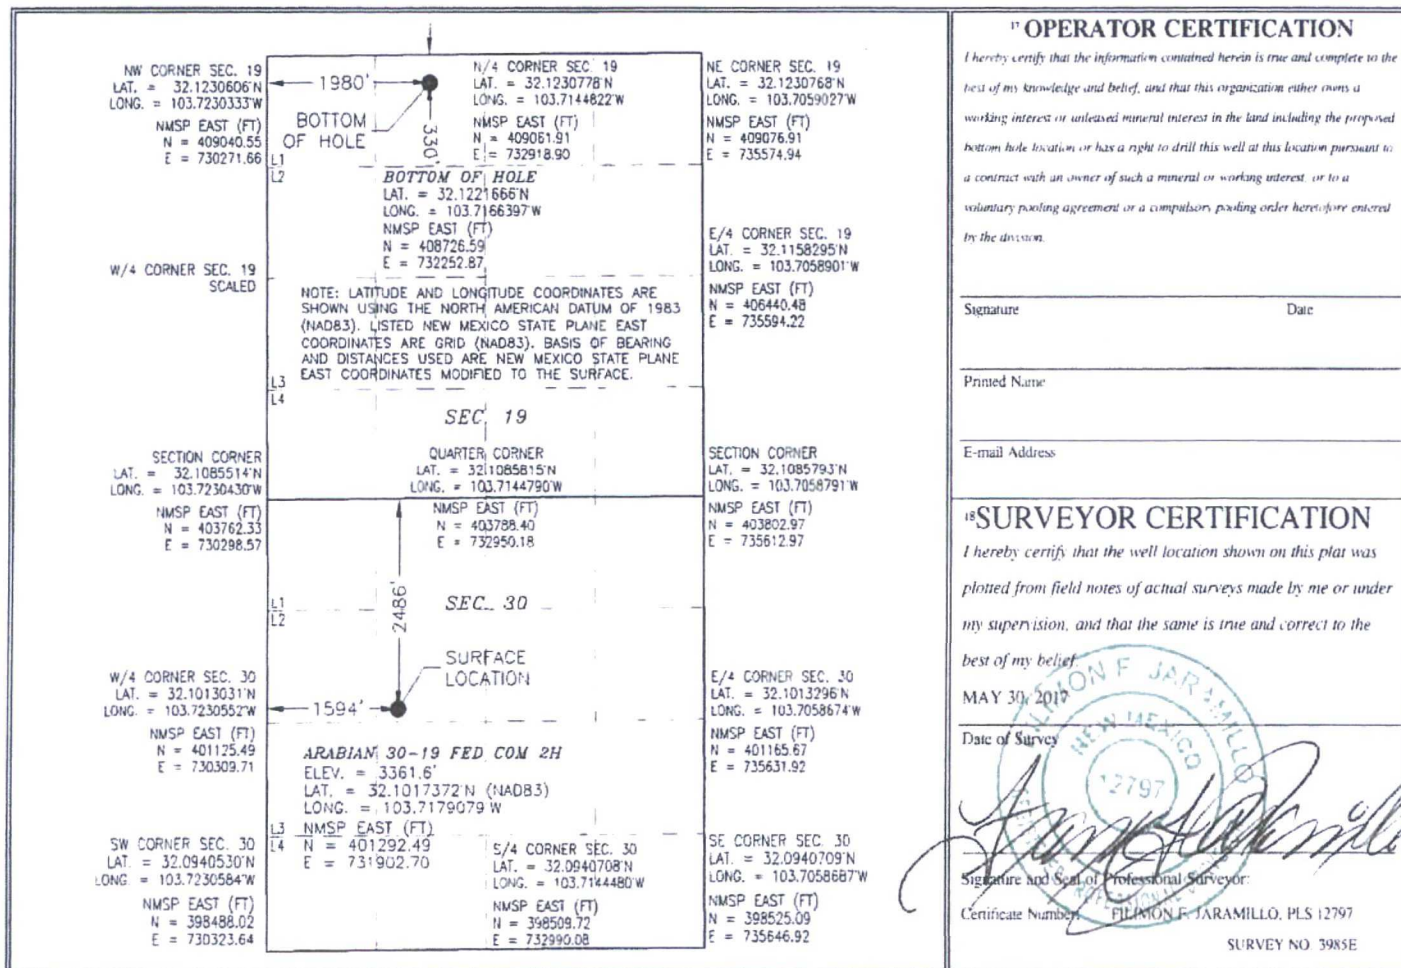 NW CORNER SEC. 19
LAT. = 32.1230606'N
LONG. = 103.7230333'W
NMSP EAST (FT)
N = 409040.55
E = 730271.66
1980'
BOTTOM
OF HOLE
330'
N/4 CORNER SEC. 19
LAT. = 32.1230778'N
LONG. = 103.7144822'W
NMSP EAST (FT)
N = 409061.91
E = 732918.90
NE CORNER SEC. 19
LAT. = 32.1230768'N
LONG. = 103.7059027'W
NMSP EAST (FT)
N = 409076.91
E = 735574.94
L1
L2
BOTTOM OF HOLE
LAT. = 32.1221666'N
LONG. = 103.7166397'W
NMSP EAST (FT)
N = 408726.59
E = 732252.87
W/4 CORNER SEC. 19
SCALED
E/4 CORNER SEC. 19
LAT. = 32.1158295'N
LONG. = 103.7058901'W
NMSP EAST (FT)
N = 406440.48
E = 735594.22
NOTE: LATITUDE AND LONGITUDE COORDINATES ARE
SHOWN USING THE NORTH AMERICAN DATUM OF 1983
(NAD83). LISTED NEW MEXICO STATE PLANE EAST
COORDINATES ARE GRID (NAD83). BASIS OF BEARING
AND DISTANCES USED ARE NEW MEXICO STATE PLANE
EAST COORDINATES MODIFIED TO THE SURFACE.
L3
L4
SEC. 19
SECTION CORNER
LAT. = 32.1085514'N
LONG. = 103.7230430'W
NMSP EAST (FT)
N = 403762.33
E = 730298.57
QUARTER CORNER
LAT. = 32.1085815'N
LONG. = 103.7144790'W
NMSP EAST (FT)
N = 403788.40
E = 732950.18
SECTION CORNER
LAT. = 32.1085793'N
LONG. = 103.7058791'W
NMSP EAST (FT)
N = 403802.97
E = 735612.97
2486'
L1
L2
SEC. 30
SURFACE
LOCATION
1594'
W/4 CORNER SEC. 30
LAT. = 32.1013031'N
LONG. = 103.7230552'W
NMSP EAST (FT)
N = 401125.49
E = 730309.71
E/4 CORNER SEC. 30
LAT. = 32.1013296'N
LONG. = 103.7058674'W
NMSP EAST (FT)
N = 401165.67
E = 735631.92
ARABIAN 30-19 FED COM 2H
ELEV. = 3361.6'
LAT. = 32.1017372'N (NAD83)
LONG. = 103.7179079'W
NMSP EAST (FT)
N = 401292.49
E = 731902.70
L3
L4
SW CORNER SEC. 30
LAT. = 32.0940530'N
LONG. = 103.7230584'W
NMSP EAST (FT)
N = 398488.02
E = 730323.64
S/4 CORNER SEC. 30
LAT. = 32.0940708'N
LONG. = 103.7144480'W
NMSP EAST (FT)
N = 398509.72
E = 732990.08
SE CORNER SEC. 30
LAT. = 32.0940709'N
LONG. = 103.7058687'W
NMSP EAST (FT)
N = 398525.09
E = 735646.92
17 OPERATOR CERTIFICATION
I hereby certify that the information contained herein is true and complete to the
best of my knowledge and belief, and that this organization either owns a
working interest or unleased mineral interest in the land including the proposed
bottom hole location or has a right to drill this well at this location pursuant to
a contract with an owner of such a mineral or working interest, or to a
voluntary pooling agreement or a compulsory pooling order heretofore entered
by the division.
Signature Date
Printed Name
E-mail Address
18 SURVEYOR CERTIFICATION
I hereby certify that the well location shown on this plat was
plotted from field notes of actual surveys made by me or under
my supervision, and that the same is true and correct to the
best of my belief.
MAY 30, 2017
Date of Survey
FILIMON F. JARAMILLO
NEW MEXICO
12797
PROFESSIONAL
Signature and Seal of Professional Surveyor:
Certificate Number: FILIMON F. JARAMILLO, PLS 12797
SURVEY NO. 3985E